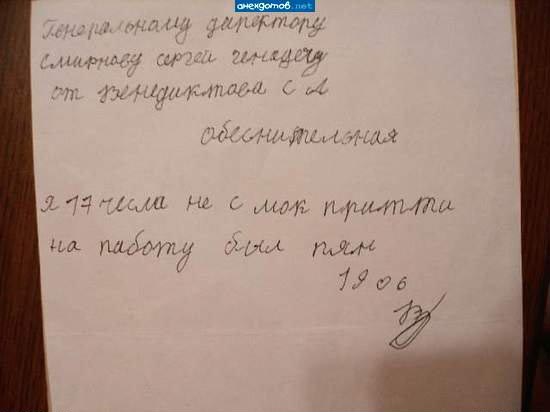 анекдотов.net
Генеральному директору
Смирнову сергей генадечу
от Венедиктова С А
обеснителэная
Я 17 числа не с мок притти
на работу был пян
19 06